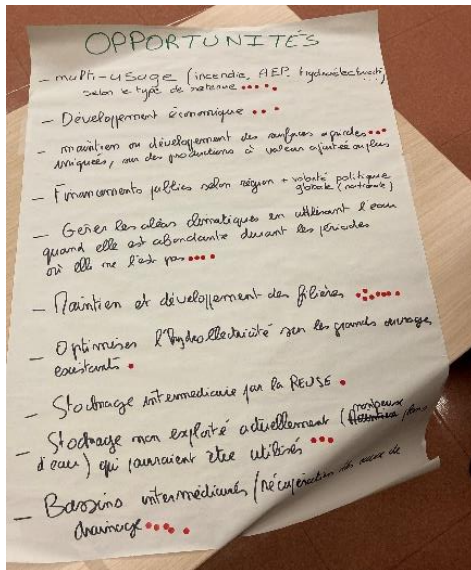 OPPORTUNITÉS
- multi-usage (incendie, AEP, hydroélectricité)
selon le type de retenue
- Développement économique
- maintien ou développement des surfaces agricoles
irriguées, ou des productions à valeur ajoutée ou plus
- Financements publics selon région + volonté politique
globale (nationale)
- Gérer les aléas climatiques en utilisant l'eau
quand elle est abondante durant les périodes
où elle ne l'est pas
- Maintien et développement des filières
- Optimiser l'hydroélectricité sur les grands ouvrages
existants
- Stockage intermédiaire par la REUSE
- Stockage non exploité actuellement (
d'eau) qui pourraient être utilisés
- Bassins intermédiaires (récupération des eaux de
drainage